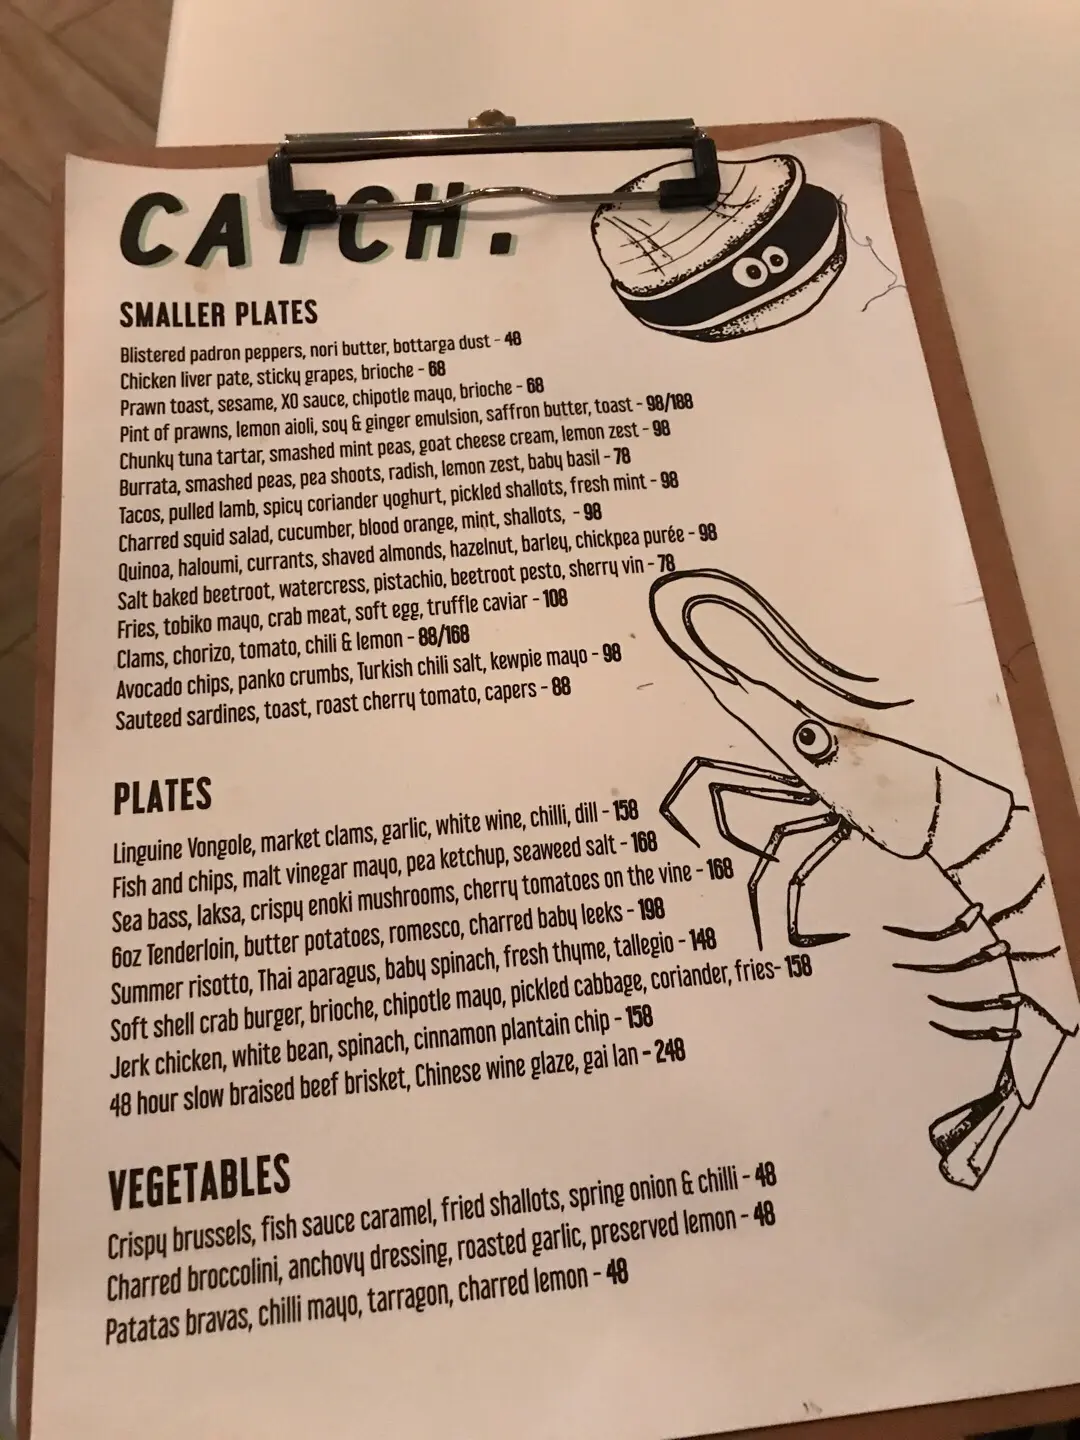 CATCH.
SMALLER PLATES
Blistered padron peppers, nori butter, bottarga dust - 48
Chicken liver pate, sticky grapes, brioche - 68
Prawn toast, sesame, XO sauce, chipotle mayo, brioche - 68
Pint of prawns, lemon aioli, soy & ginger emulsion, saffron butter, toast - 98/188
Chunky tuna tartar, smashed mint peas, goat cheese cream, lemon zest - 98
Burrata, smashed peas, pea shoots, radish, lemon zest, baby basil - 78
Tacos, pulled lamb, spicy coriander yoghurt, pickled shallots, fresh mint - 98
Charred squid salad, cucumber, blood orange, mint, shallots, - 98
Quinoa, haloumi, currants, shaved almonds, hazelnut, barley, chickpea purée - 98
Salt baked beetroot, watercress, pistachio, beetroot pesto, sherry vin - 78
Fries, tobiko mayo, crab meat, soft egg, truffle caviar - 108
Clams, chorizo, tomato, chili & lemon - 88/168
Avocado chips, panko crumbs, Turkish chili salt, kewpie mayo - 98
Sauteed sardines, toast, roast cherry tomato, capers - 88
PLATES
Linguine Vongole, market clams, garlic, white wine, chilli, dill - 158
Fish and chips, malt vinegar mayo, pea ketchup, seaweed salt - 168
Sea bass, laksa, crispy enoki mushrooms, cherry tomatoes on the vine - 168
6oz Tenderloin, butter potatoes, romesco, charred baby leeks - 198
Summer risotto, Thai aparagus, baby spinach, fresh thyme, tallegio - 148
Soft shell crab burger, brioche, chipotle mayo, pickled cabbage, coriander, fries- 158
Jerk chicken, white bean, spinach, cinnamon plantain chip - 158
48 hour slow braised beef brisket, Chinese wine glaze, gai lan - 248
VEGETABLES
Crispy brussels, fish sauce caramel, fried shallots, spring onion & chilli - 48
Charred broccolini, anchovy dressing, roasted garlic, preserved lemon - 48
Patatas bravas, chilli mayo, tarragon, charred lemon - 48